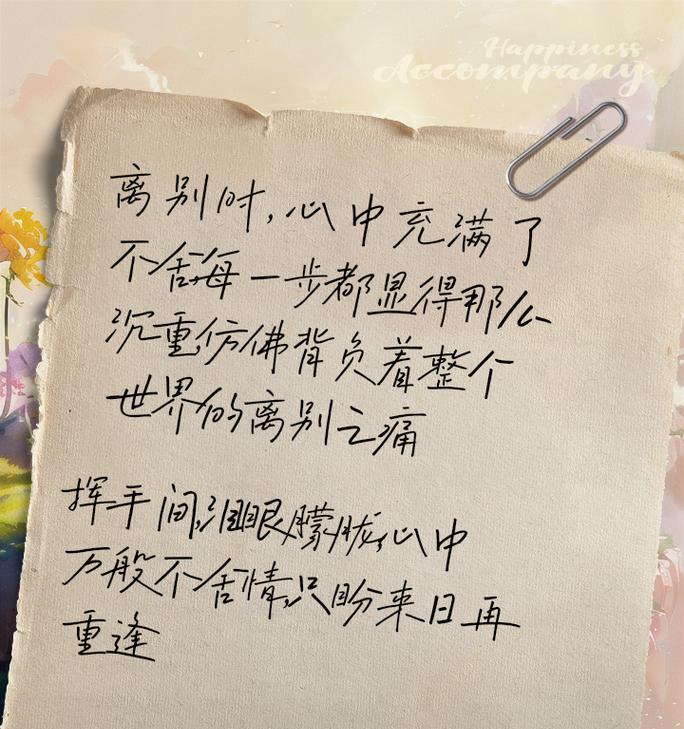 Happiness
Accompany
离别时,心中充满了
不舍,每一步都显得那么
沉重,仿佛背负着整个
世界的离别之痛
挥手间,泪眼朦胧,心中
万般不舍情,只盼来日再
重逢